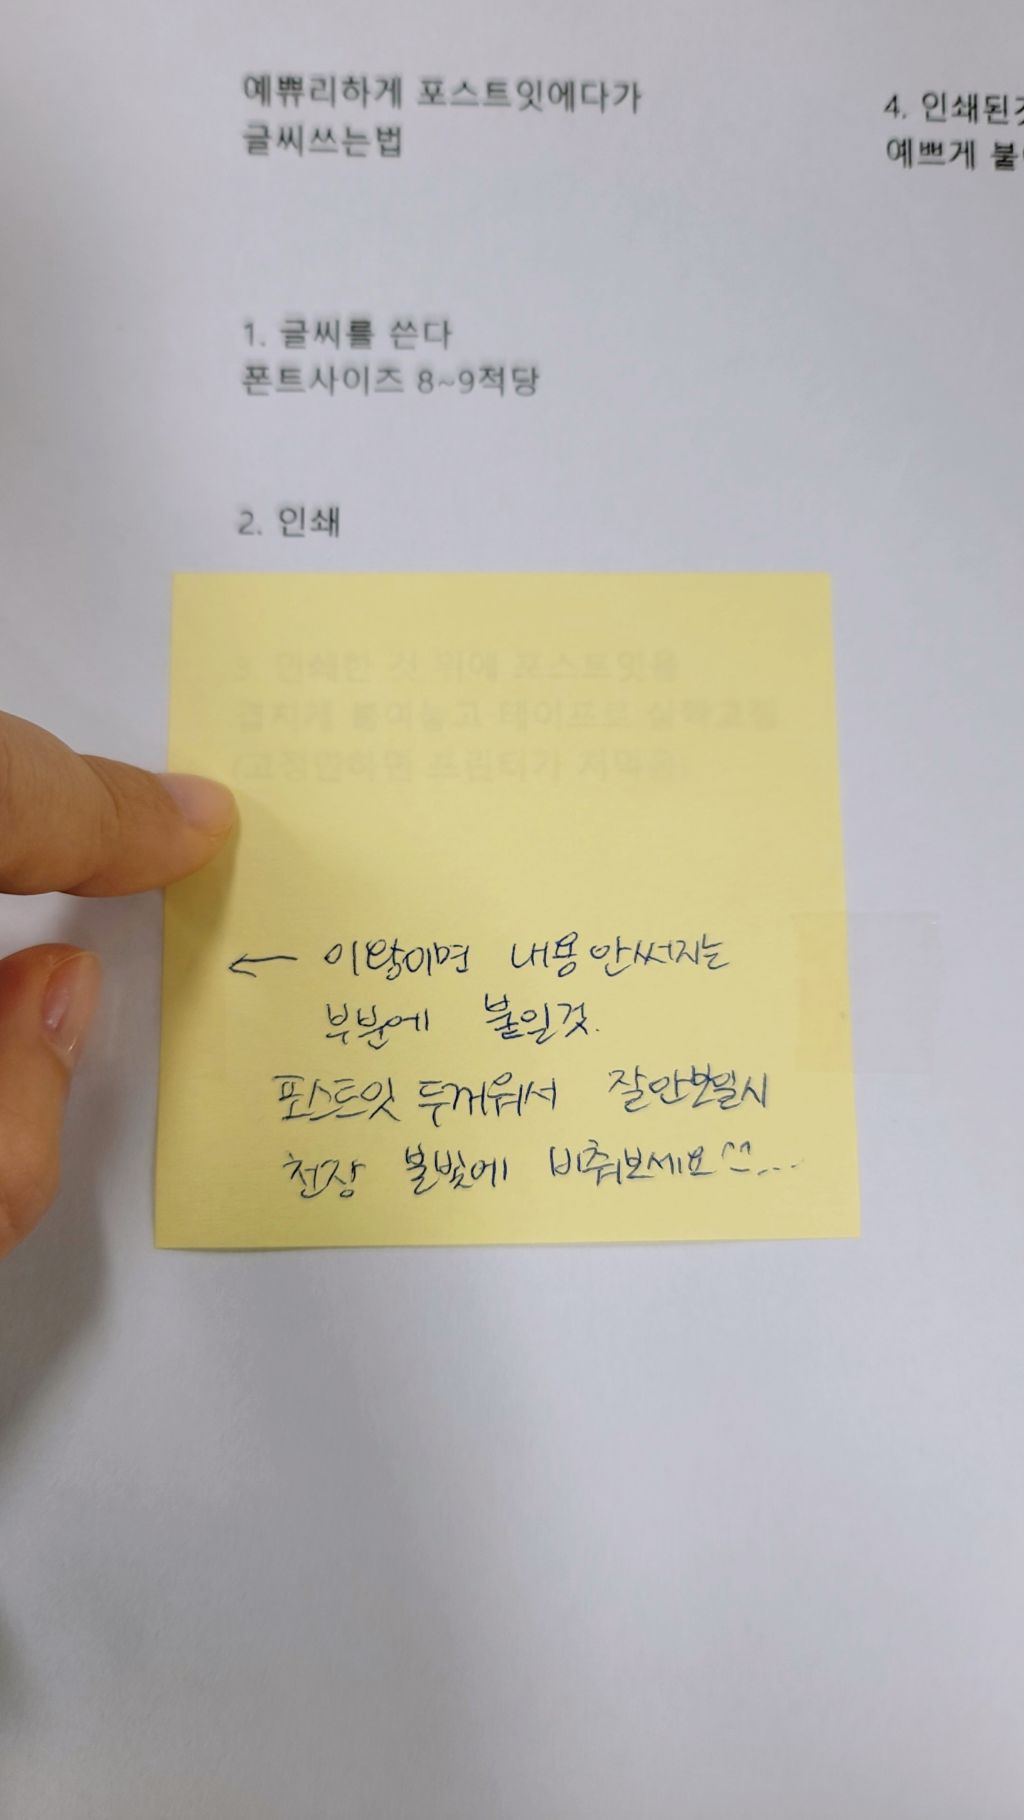 예쀼리하게 포스트잇에다가
글씨쓰는법
1. 글씨를 쓴다
폰트사이즈 8~9적당
2. 인쇄
3. 인쇄한 것 위에 포스트잇을
겹치게 붙여놓고 테이프로 살짝고정
(고정안하면 프린터가 처먹음)
← 이왕이면 내용 안써지는
부분에 붙일것.
포스트잇 두꺼워서 잘안보일시
천장 불빛에 비춰보세요^^...
4. 인쇄된
예쁘게